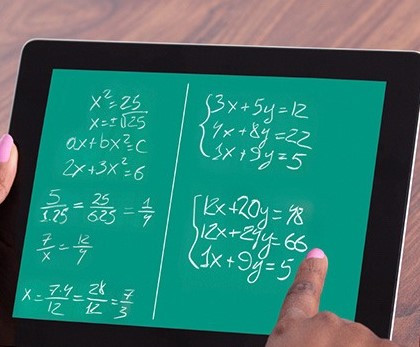 x²=25
x=±√25
ax+bx²=c
2x+3x²=6
5/1.25 = 25/625 = 1/4
7/x = 12/4
x = 7.4/12 = 28/12 = 7/3
3x+5y=12
4x+8y=22
1x+9y=5
12x+20y=48
12x+24y=66
1x+9y=5